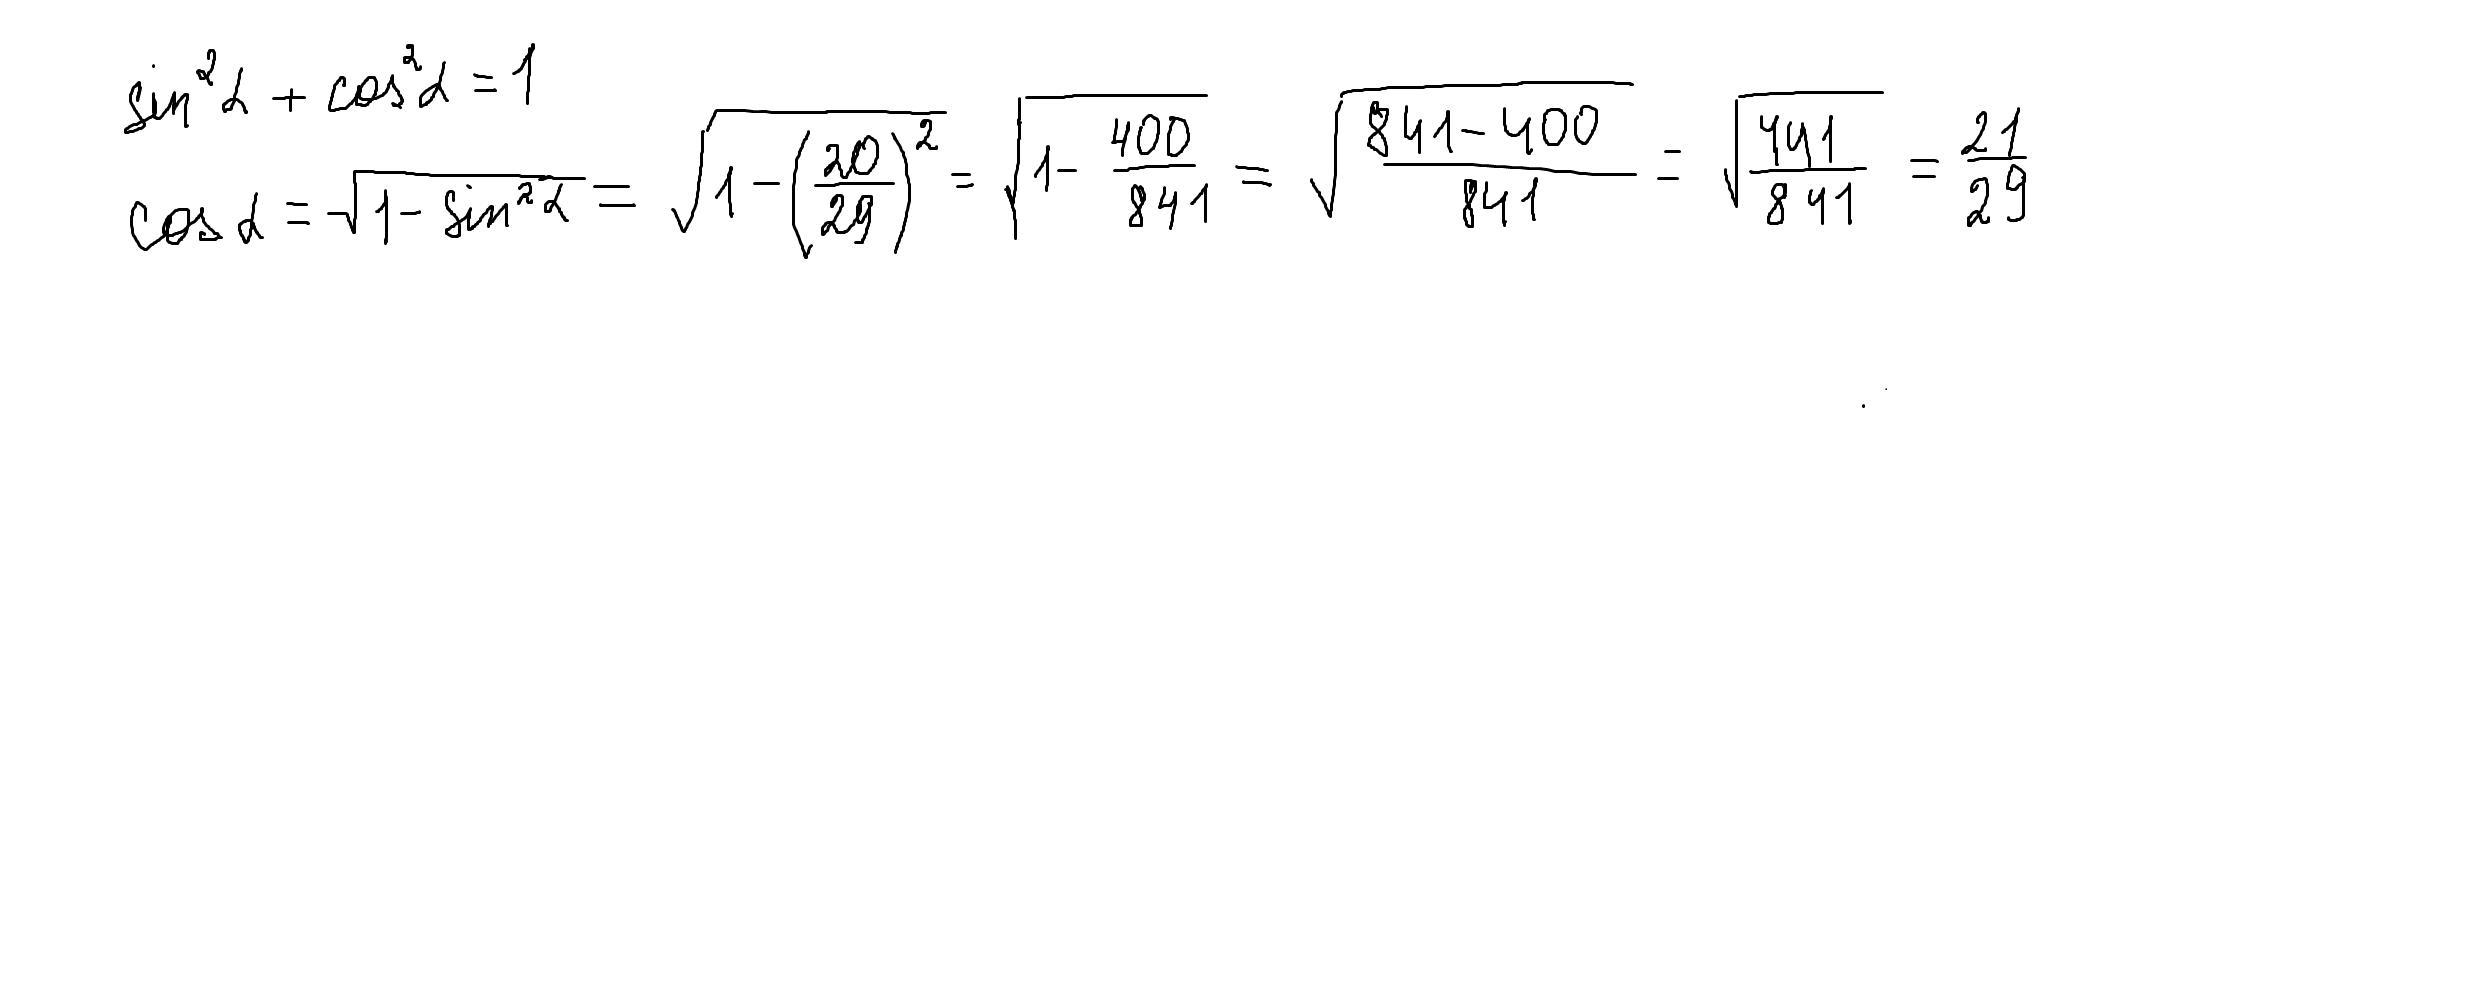 sin²α + cos²α = 1
cos α = √(1 - sin²α) = √(1 - (20/29)²) = √(1 - 400/841) = √((841 - 400)/841) = √(441/841) = 21/29